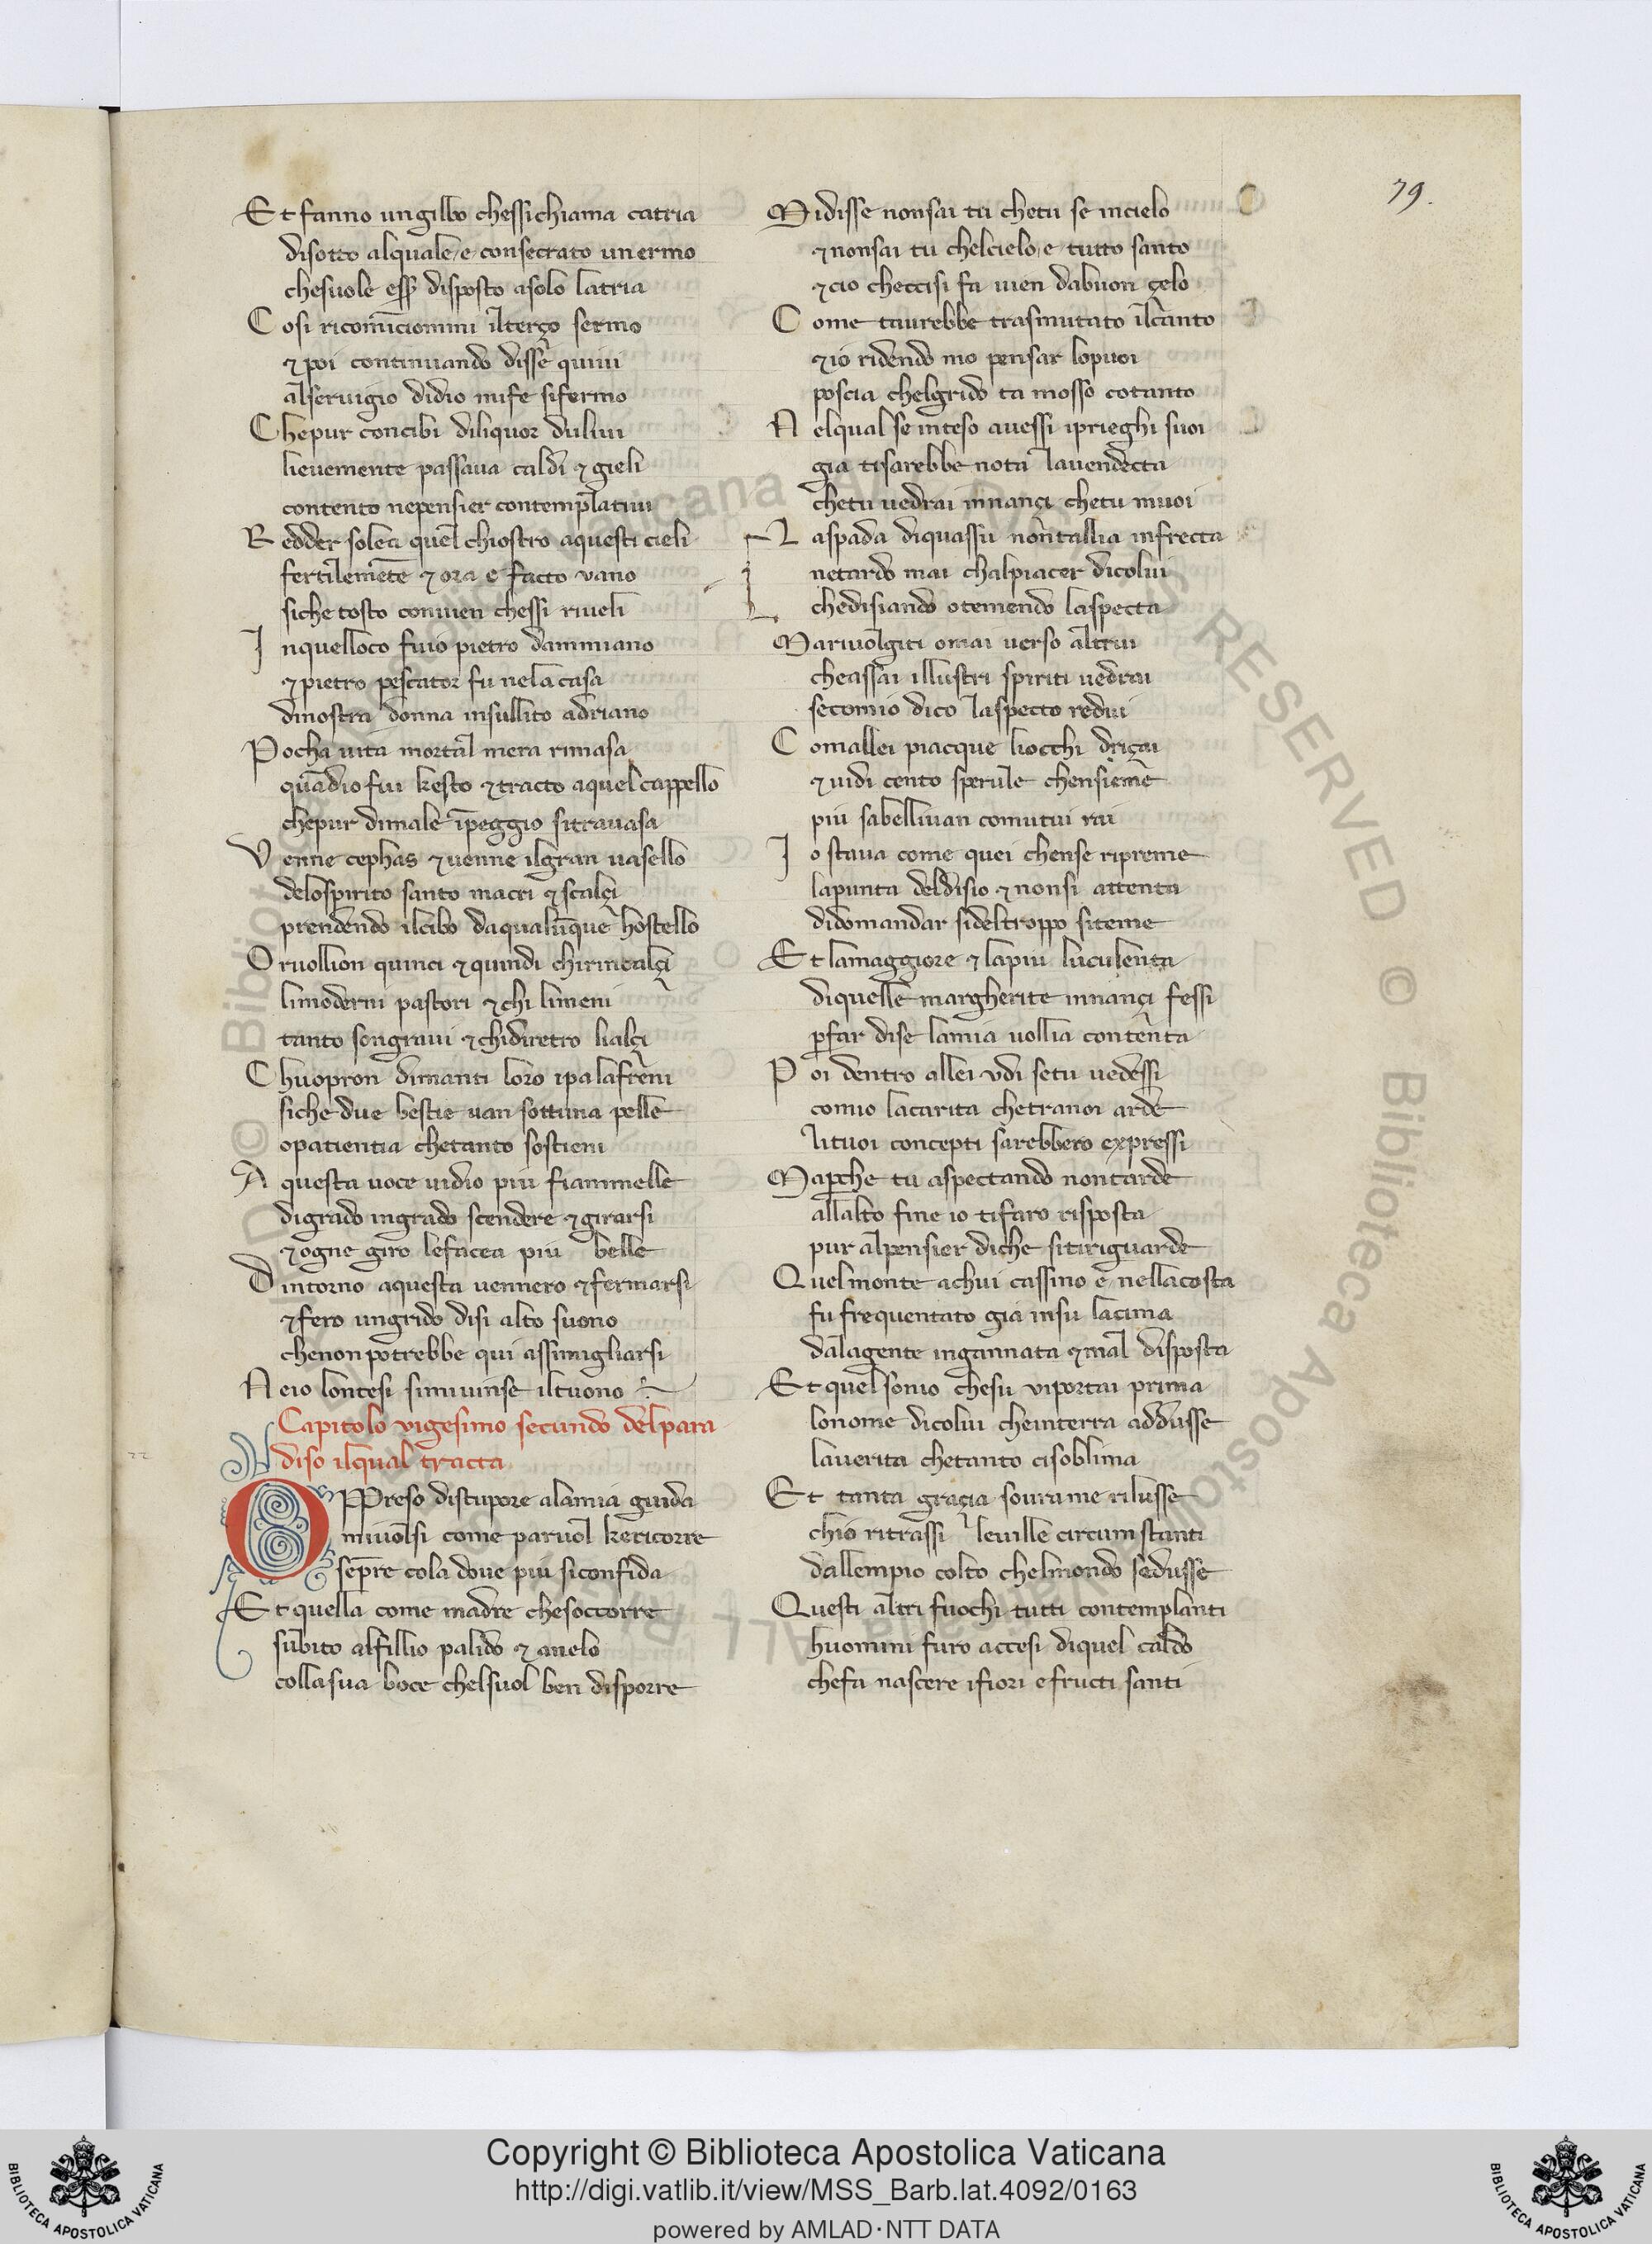 79.
Et fanno ungilbo chessichiama catria
disotto alquale e consecrato un ermo
chesuole esser disposto asolo latria
Cosi ricomīciommi ilterço sermo
⁊ poi continuando disse quiui
alseruigio didio mife sifermo
Chepur concibi diliquor duliui
lieuemente passaua caldi ⁊ gieli
contento nepensier contemplatiui
Redder solea quel chiostro aquesti cieli
fertilemēte ⁊ ora e facto vano
siche tosto conuien chessi riueli
Inquelloco fuio pietro dammiano
⁊ pietro pescator fu nela casa
dinostra donna insullito adriano
Pocha uita mortal mera rimasa
quādio fui kesto ⁊ tracto aquel cappello
chepur dimale īpeggio sitrauasa
Venne cephas ⁊ uenne ilgran uasello
delospirito santo macri ⁊ scalçi
prendendo ilcibo daqualūque hostello
Oruollion quinci ⁊ quindi chirincalçi
limoderni pastori ⁊ chi limeni
tanto songraui ⁊ chidiretro lialçi
Chuopron dimanti loro ipalafreni
siche due bestie uan sottuna pelle
opatientia chetanto sostieni
A questa uoce uidio piu fiammelle
digrado ingrado scendere ⁊ girarsi
⁊ ogne giro lefacea piu belle
Dintorno aquesta uennero ⁊ fermarsi
⁊ fero ungrido disi alto suono
chenon potrebbe qui assimigliarsi
Neio lontesi simiuinse iltuono
Capitolo vigesimo secundo delpara
diso ilqual tracta
22
OPPreso distupore alamia guida
miuolsi come paruol kericorre
sēpre cola doue piu siconfida
Et quella come madre chesoccorre
subito alfillio palido ⁊ anelo
collasua boce chelsuol ben disporre
Midisse nonsai tu chetu se incielo
⁊ nonsai tu chelcielo e tutto santo
⁊ cio checcisi fa uien dabuon çelo
Come taurebbe trasmutato ilcanto
⁊ io ridendo mo pensar lopuoi
poscia chelgrido ta mosso cotanto
Nelqual se inteso auessi iprieghi suoi
gia tisarebbe nota lauendecta
chetu uedrai innançi chetu muoi
Laspada diquassu nontallia infrecta
netardo mai chalpiacer dicolui
chedisiando otemendo laspecta
Mariuolgiti omai uerso altrui
cheassai illustri spiriti uedrai
secomio dico laspecto redui
Comallei piacque liocchi driçai
⁊ uidi cento sperule chensieme
piu sabelliuan comutui rai
Io staua come quei chense ripreme
lapunta deldisio ⁊ nonsi attenta
didomandar sideltroppo siteme
Et lamaggiore ⁊ lapiu luculenta
diquelle margherite innançi fessi
perfar dise lamia uollia contenta
Poi dentro allei vdi setu uedessi
comio lacarita chetranoi arde
lituoi concepti sarebbero expressi
Maperche tu aspectando nontarde
allalto fine io tifaro risposta
pur alpensier diche sitiriguarde
Quelmonte achui cassino e nellacosta
fu frequentato gia insu lacima
dalagente ingannata ⁊ mal disposta
Et quel sonio chesu viportai prima
lonome dicolui cheinterra addusse
lauerita chetanto cisoblima
Et tanta graçia soura me rilusse
chio ritrassi leuille circumstanti
dallempio colto chelmondo sedusse
Questi altri fuochi tutti contemplanti
huomini furo accesi diquel caldo
chefa nascere ifiori efructi santi
Copyright © Biblioteca Apostolica Vaticana
http://digi.vatlib.it/view/MSS_Barb.lat.4092/0163
powered by AMLAD·NTT DATA
BIBLIOTECA APOSTOLICA VATICANA
BIBLIOTECA APOSTOLICA VATICANA